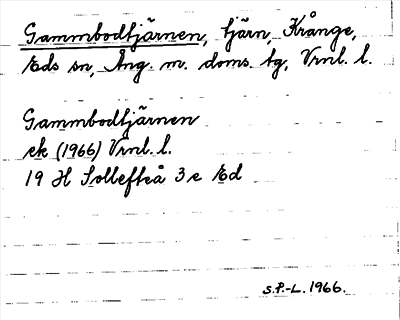 Gammbodtjärnen, tjärn, Krånge,
Eds sn, Ång. m. doms. tg, Vrnl. l.
Gammbodtjärnen
ek (1966) Vrnl. l.
19 H Sollefteå 3e Ed
S.P.-L. 1966.